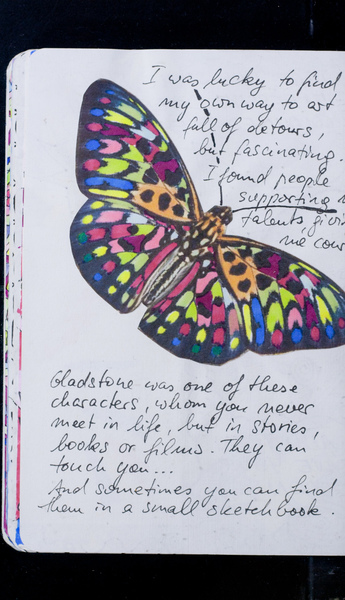 I was lucky to find
my own way to art
full of detours,
but fascinating.
I found people
supporting
talents,
me
Gladstone was one of these
characters, whom you never
meet in life, but in stories,
books or films. They can
touch you...
And sometimes you can find
them in a small sketchbook.